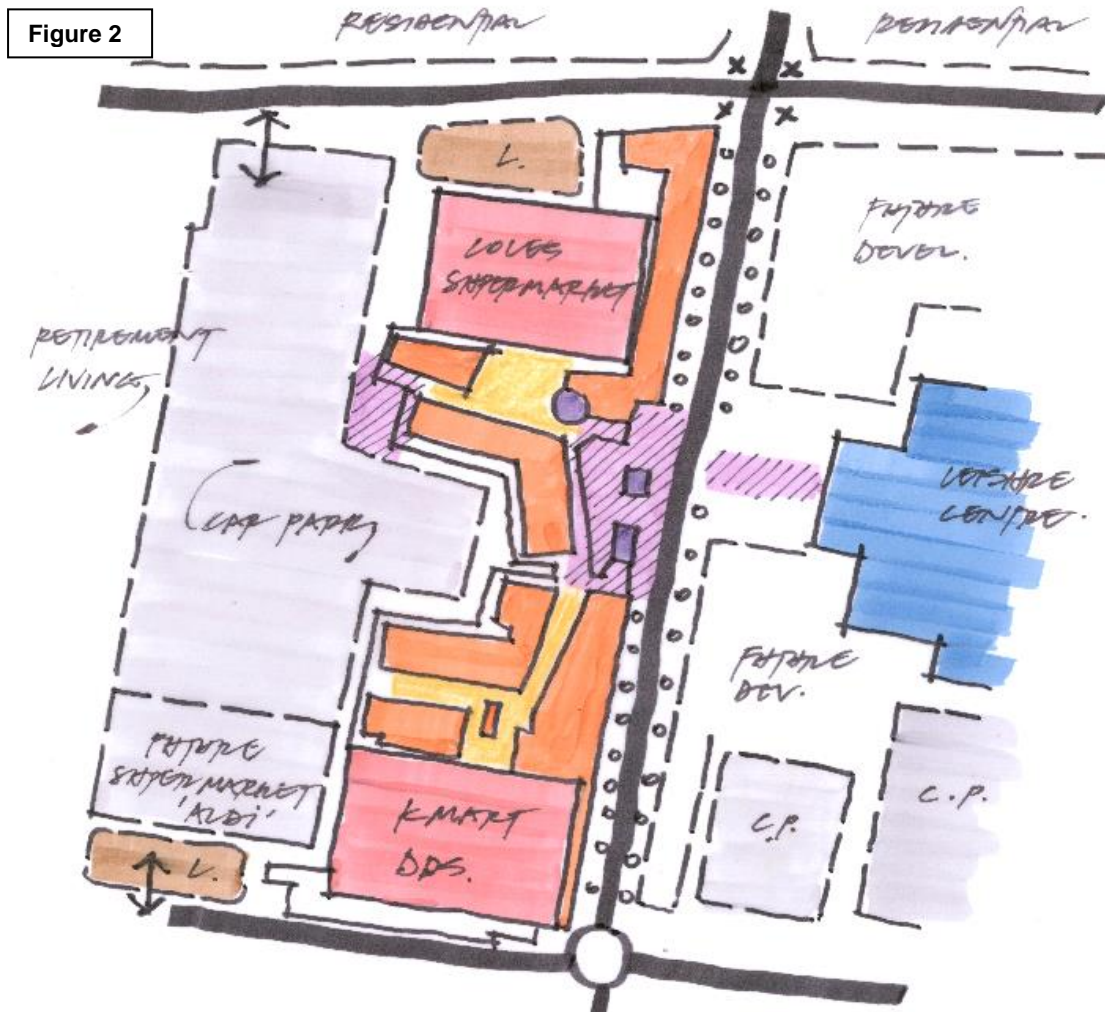 Figure 2
RESIDENTIAL
RESIDENTIAL
L.
COLES
SUPERMARKET
FUTURE
DEVEL.
RETIREMENT
LIVING
LEISURE
CENTRE.
CAR PARK
FUTURE
DEV.
FUTURE
SUPERMARKET
'ALDI'
KMART
DDS.
C.P.
C.P.
L.